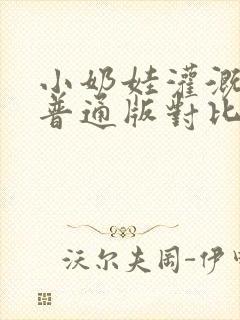 小奶娃灌溉
普通版對比
沃尔夫冈-伊